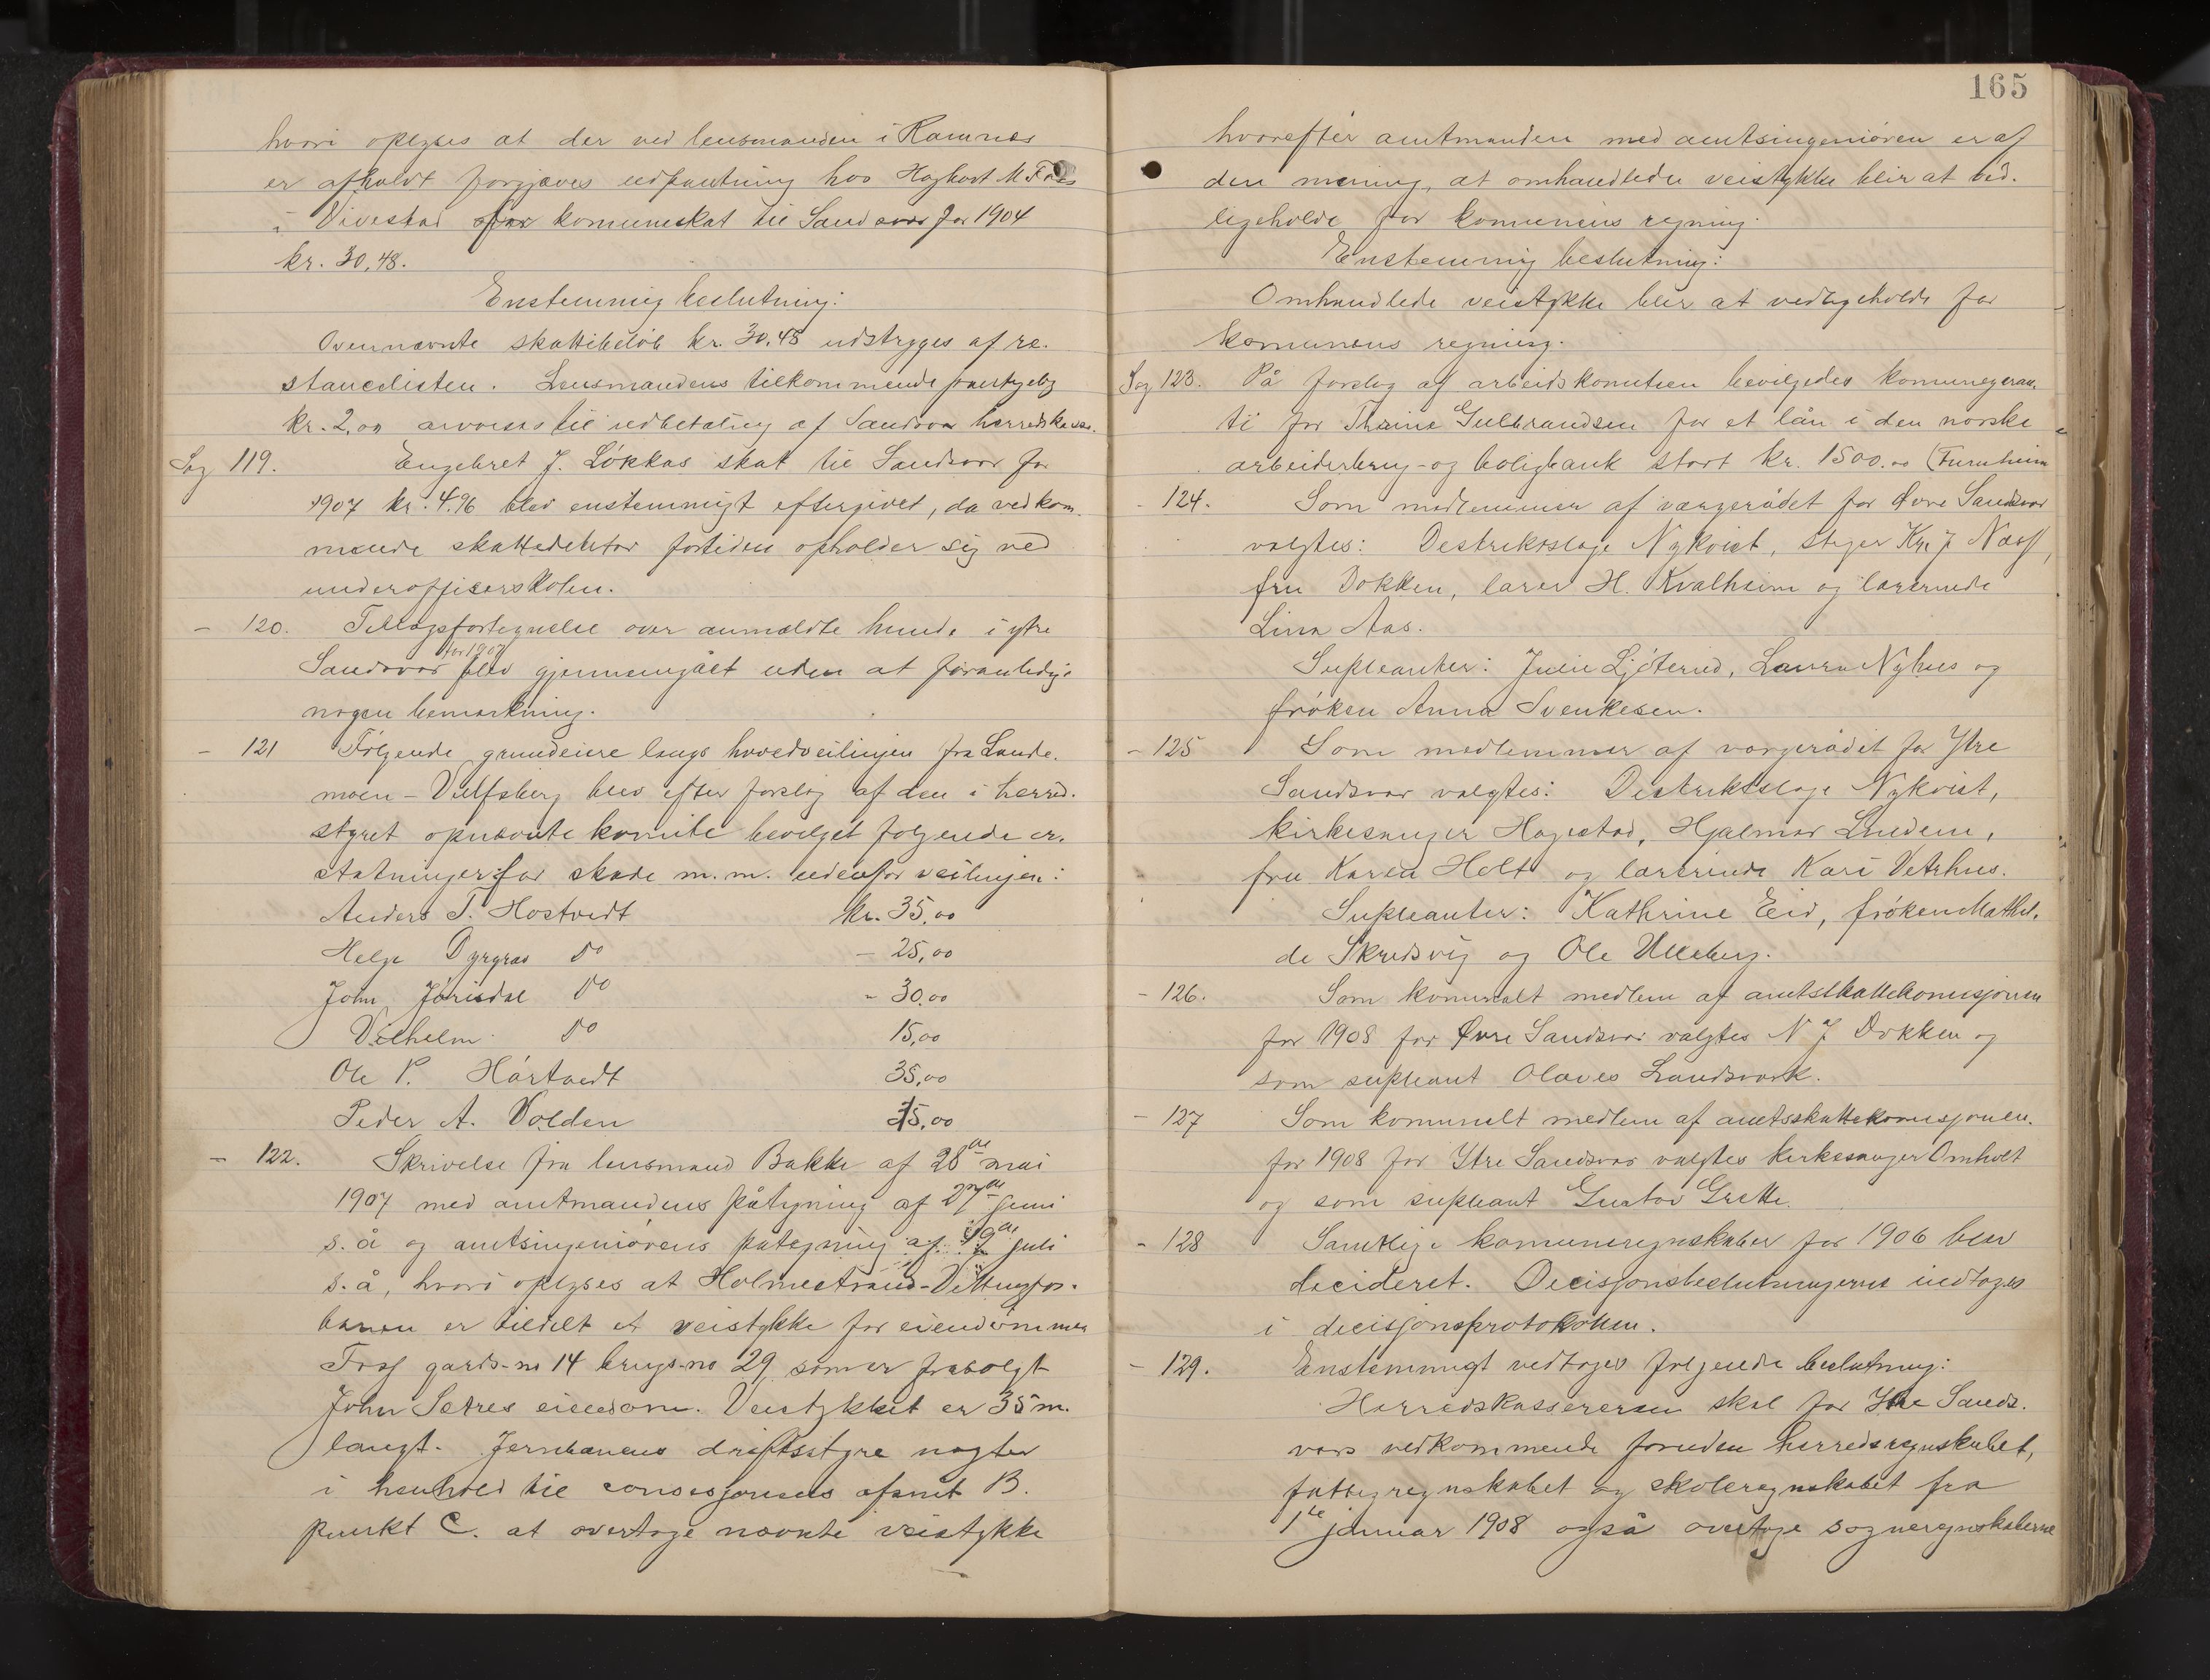 hvori oplyses at der ved lensmanden i Ramnes
er afholdt forgjæves udpantning hos Hagbart M. Foss
i Vivestad for komuneskat til Sandsvær for 1904
kr. 30,48.
Enstemmig beslutning:
Ovennævnte skattebeløb kr. 30.48 udstryges af re-
stancelisten. Lensmandens tilkommende pantegeby
kr. 2,00 anvises til udbetaling af Sandsvær herredskasse.
Sag 119. Engebret J. Løkkas skat til Sandsvær for
1907 kr. 4.96 blev enstemmigt eftergivet, da vedkom-
mende skattedebitor fortiden opholder sig ved
underoffisersskolen.
- 120. Tillægsfortegnelse over anmeldte hunde i ytre
Sandsvær for 1907 blev gjennemgået uden at foranledige
nogen bemærkning.
- 121 Følgende grundeiere langs hovedveilinjen fra Lande-
moen - Vulfsberg blev efter forslag af den i herred-
styret opnævnte komite bevilget følgende er-
statninger for skade m.m. udenfor veilinjen:
Anders T. Hostvedt kr. 35,00
Helge Dyrgrav do - 25,00
John Jørisdal do - 30.00
Vilhelm do 15,00
Ole P. Hårtvedt 35,00
Peder A. Volden 15,00
- 122. Skrivelse fra lensmand Bakke af 28de mai
1907 med amtmandens påtegning af 27de juni
s. å og amtsingeniørens påtegning af 19de juli
s. å, hvori oplyses at Holmestrand-Vittingfos-
banen er tildelt et veistykke for eiendommen
Foss gards-no 14 brugs-no 29 som er frasolgt
John Setres eiendom. Veistykket er 35 m.
langt. Jernbanens driftsstyre nægter
i henhold til concesjonens afsnit B.
punkt C. at overtage nævnte veistykke
165
hvorefter amtmanden med amtsingeniøren er af
den mening, at omhandlede veistykke blir at ved-
ligeholde for komunens regning.
Enstemmig beslutning:
Omhandlede veistykke blir at vedligeholde for
komunens regning.
Sag 123. På forslag af arbeidskomiteen bevilgedes komunegaran-
ti for Thrine Gulbrandsen for et lån i den norske
arbeiderbrug- og boligbank stort kr. 1500.00 (Furuheim
- 124. Som medlemmer af værgerådet for Øvre Sandsvær
valgtes: Destriktslæge Nykvist, stiger Kr. J. Næss,
fru Dokken, lærer H. Kvalheim og lærerinde
Lina Aas.
Supleanter: Julie Ljøterud, Laura Nyhus og
frøken Anna Svenkesen.
- 125 Som medlemmer af værgerådet for Ytre
Sandsvær valgtes: Destriktslæge Nykvist,
kirkesanger Hagestad, Hjalmar Lindem,
fru Karen Holt og lærerinde Kari Vetrhus.
Supleanter: Kathrine Eid, frøken Mathil-
de Skredsvig og Ole Ulleberg.
- 126. Som komunalt medlem af amtsskattekomisjonen
for 1908 for Øvre Sandsvær valgtes N J Dokken og
som supleant Olaves Landsværk.
- 127 Som komunalt medlem af amtsskattekomisjonen
for 1908 for Ytre Sandsvær valgtes kirkesanger Omholt
og som supleant Gustav Grette.
- 128 Samtlige komuneregnskaber for 1906 blev
decideret. Decisjonsbeslutningerne indtages
i decisjonsprotokollen.
- 129. Enstemmigt vedtoges følgende beslutning:
Herredskassereren skal for Ytre Sands-
værs vedkommende foruden herredsregnskabet,
fattigregnskabet og skoleregnskabet fra
1ste januar 1908 også overtage sogneregnskaberne